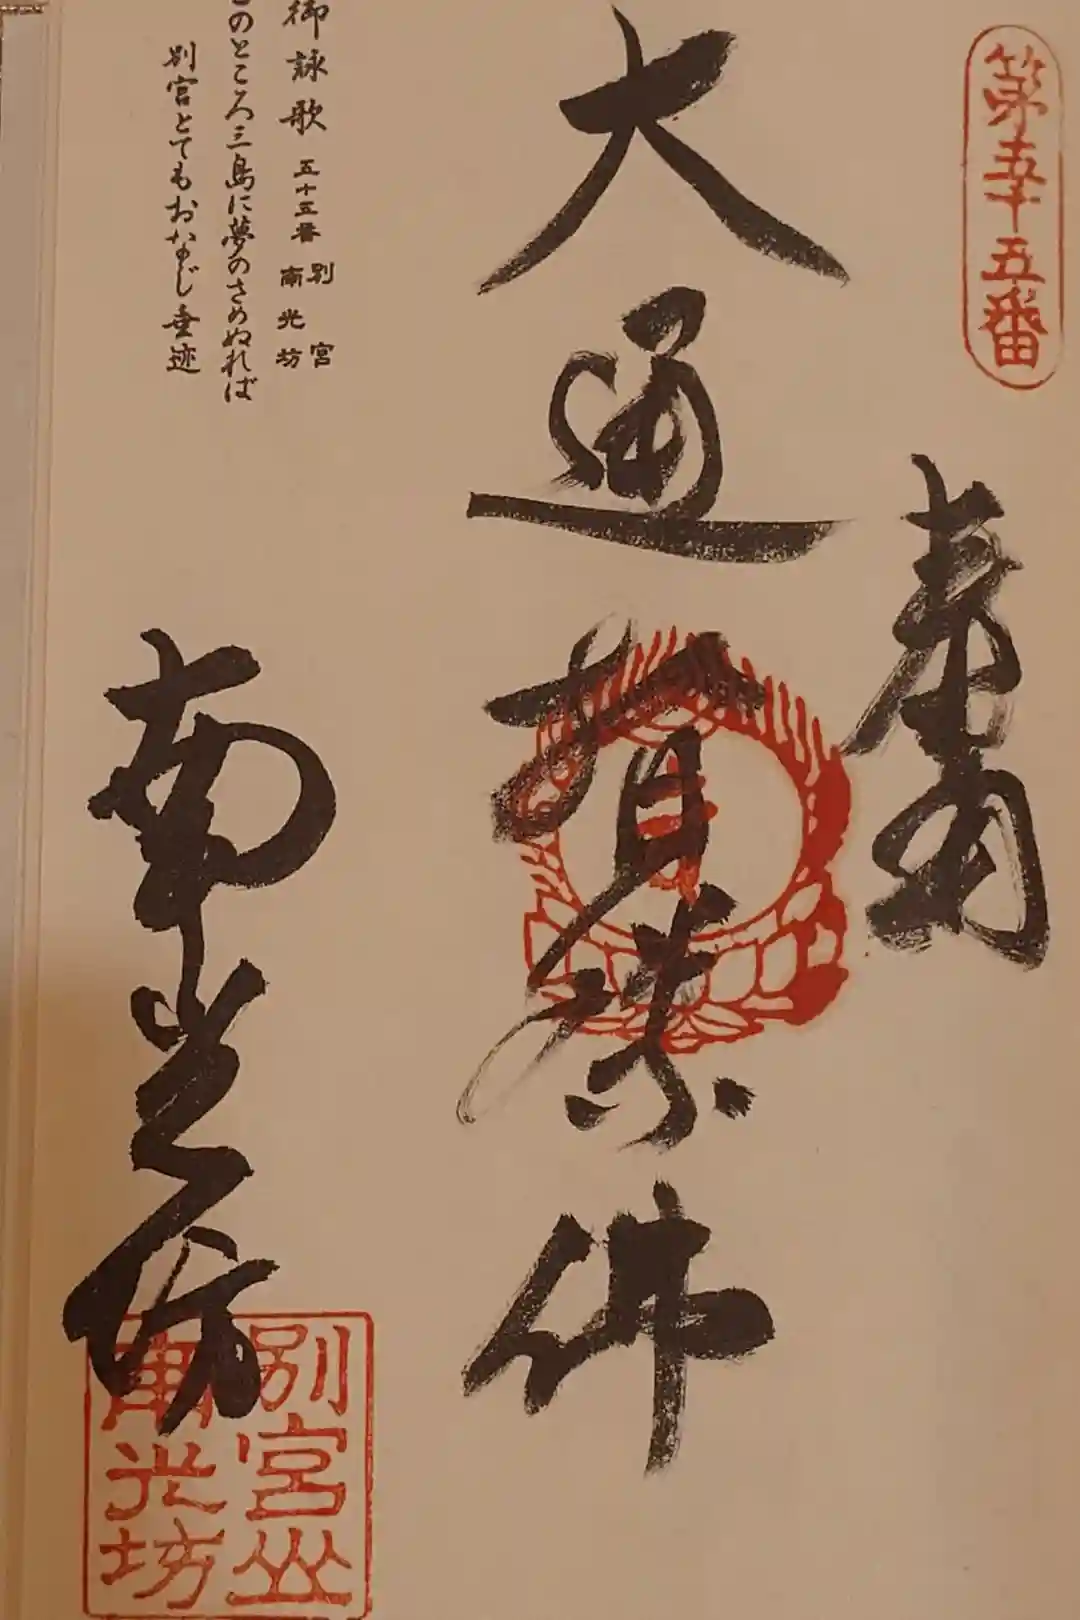 第五十五番
奉納
大通智勝佛
南光坊
別宮山
南光坊
御詠歌 五十五番 別宮 南光坊
このところ三島に夢のさめぬれば
別宮とてもおなじ垂迹